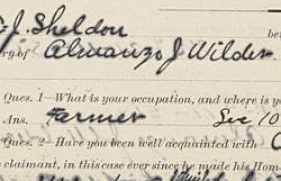 J. Sheldon be
ry of Almanzo J Wilder
Ques. 1—What is your occupation, and where is yo
Ans. Farmer Sec 10
Ques. 2—Have you been well acquainted with
claimant, in this case ever since he made his Hom